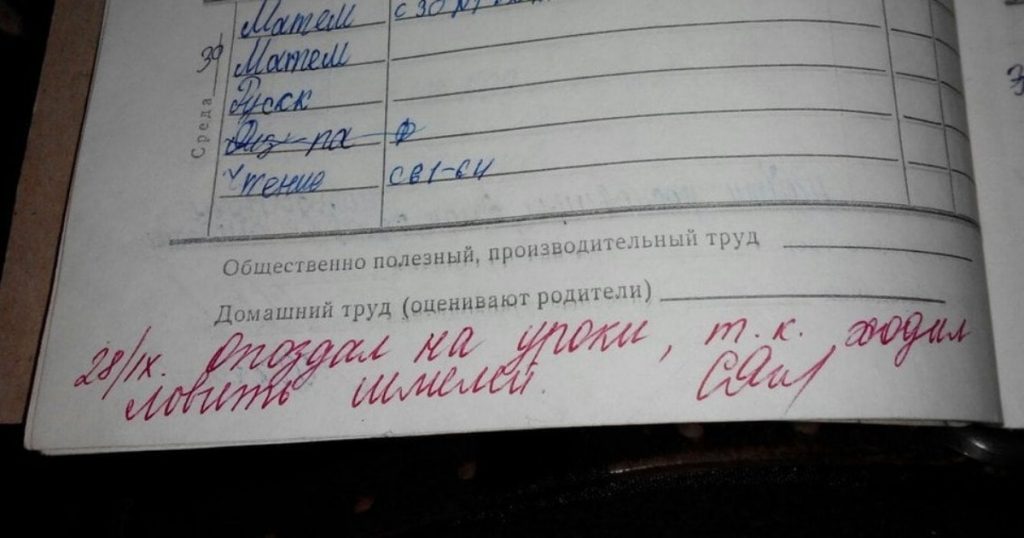 Матем с 30 №
30
Матем
Среда
Русск
Физ-ра ф
Чтение с 61-64
Общественно полезный, производительный труд
Домашний труд (оценивают родители)
28/IX. Опоздал на уроки, т. к. ходил
ловить шмелей.